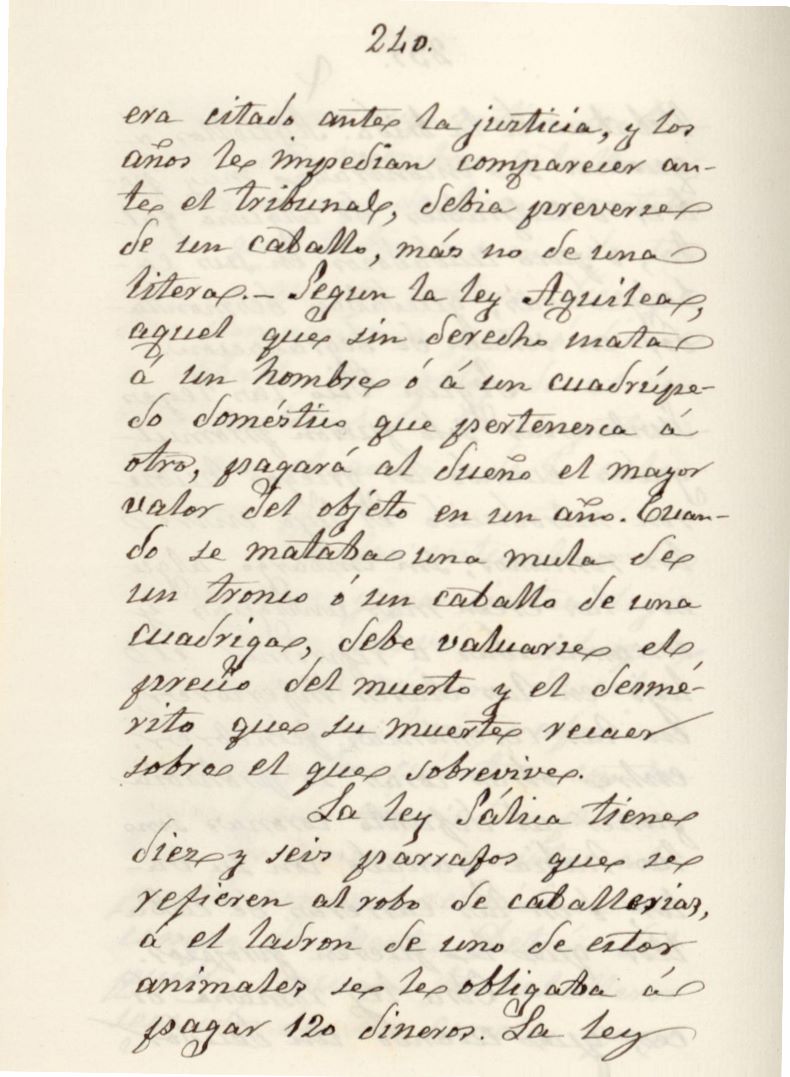 240.
era citado ante la justicia, y los
años le impedian comparecer an-
te el tribunal, debia preverse
de un caballo, más no de una
litera. – Segun la ley Aquilea,
aquel que sin derecho mata
á un hombre ó á un cuadrúpe-
do doméstico que pertenesca á
otro, pagará al dueño el mayor
valor del objéto en un año. Cuan-
do se mataba una mula de
un tronco ó un caballo de una
cuadriga, debe valuarse el
precio del muerto y el desmé-
rito que su muerte recaer
sobre el que sobrevive.
La ley Sálica tiene
diez y seis párrafos que se
refieren al robo de caballerias,
á el ladron de uno de estos
animales se le obligaba á
pagar 120 dineros. La ley